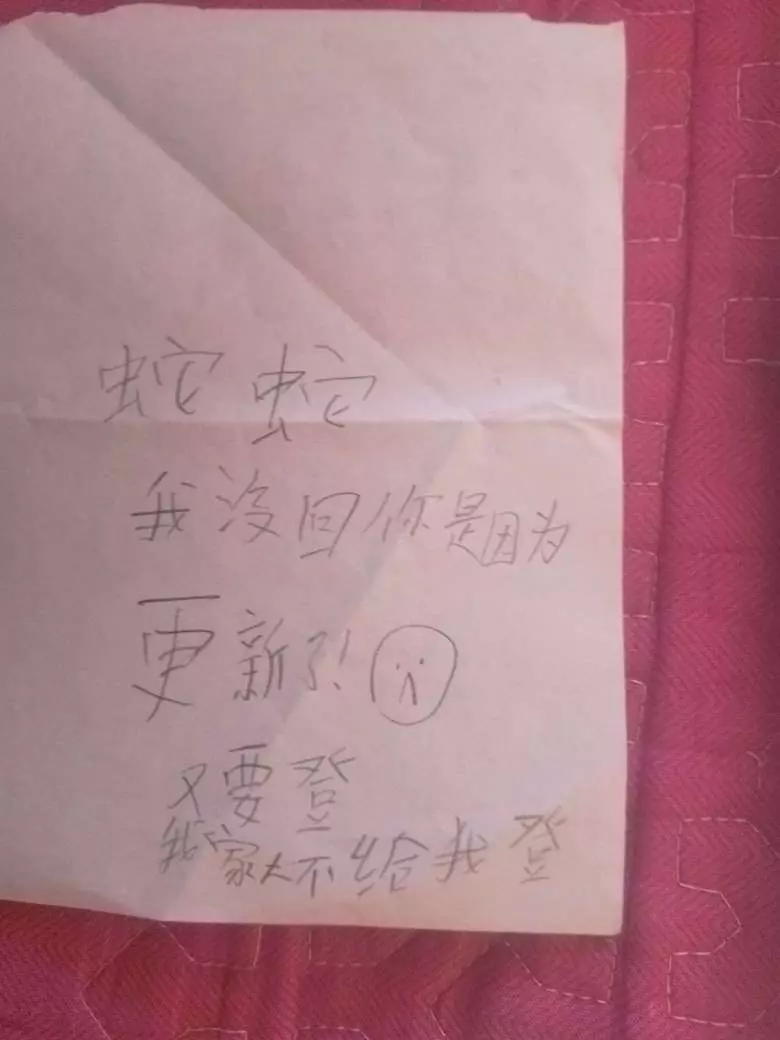 蛇蛇
我没回你是因为
更新了!
又要登
我家人不给我登